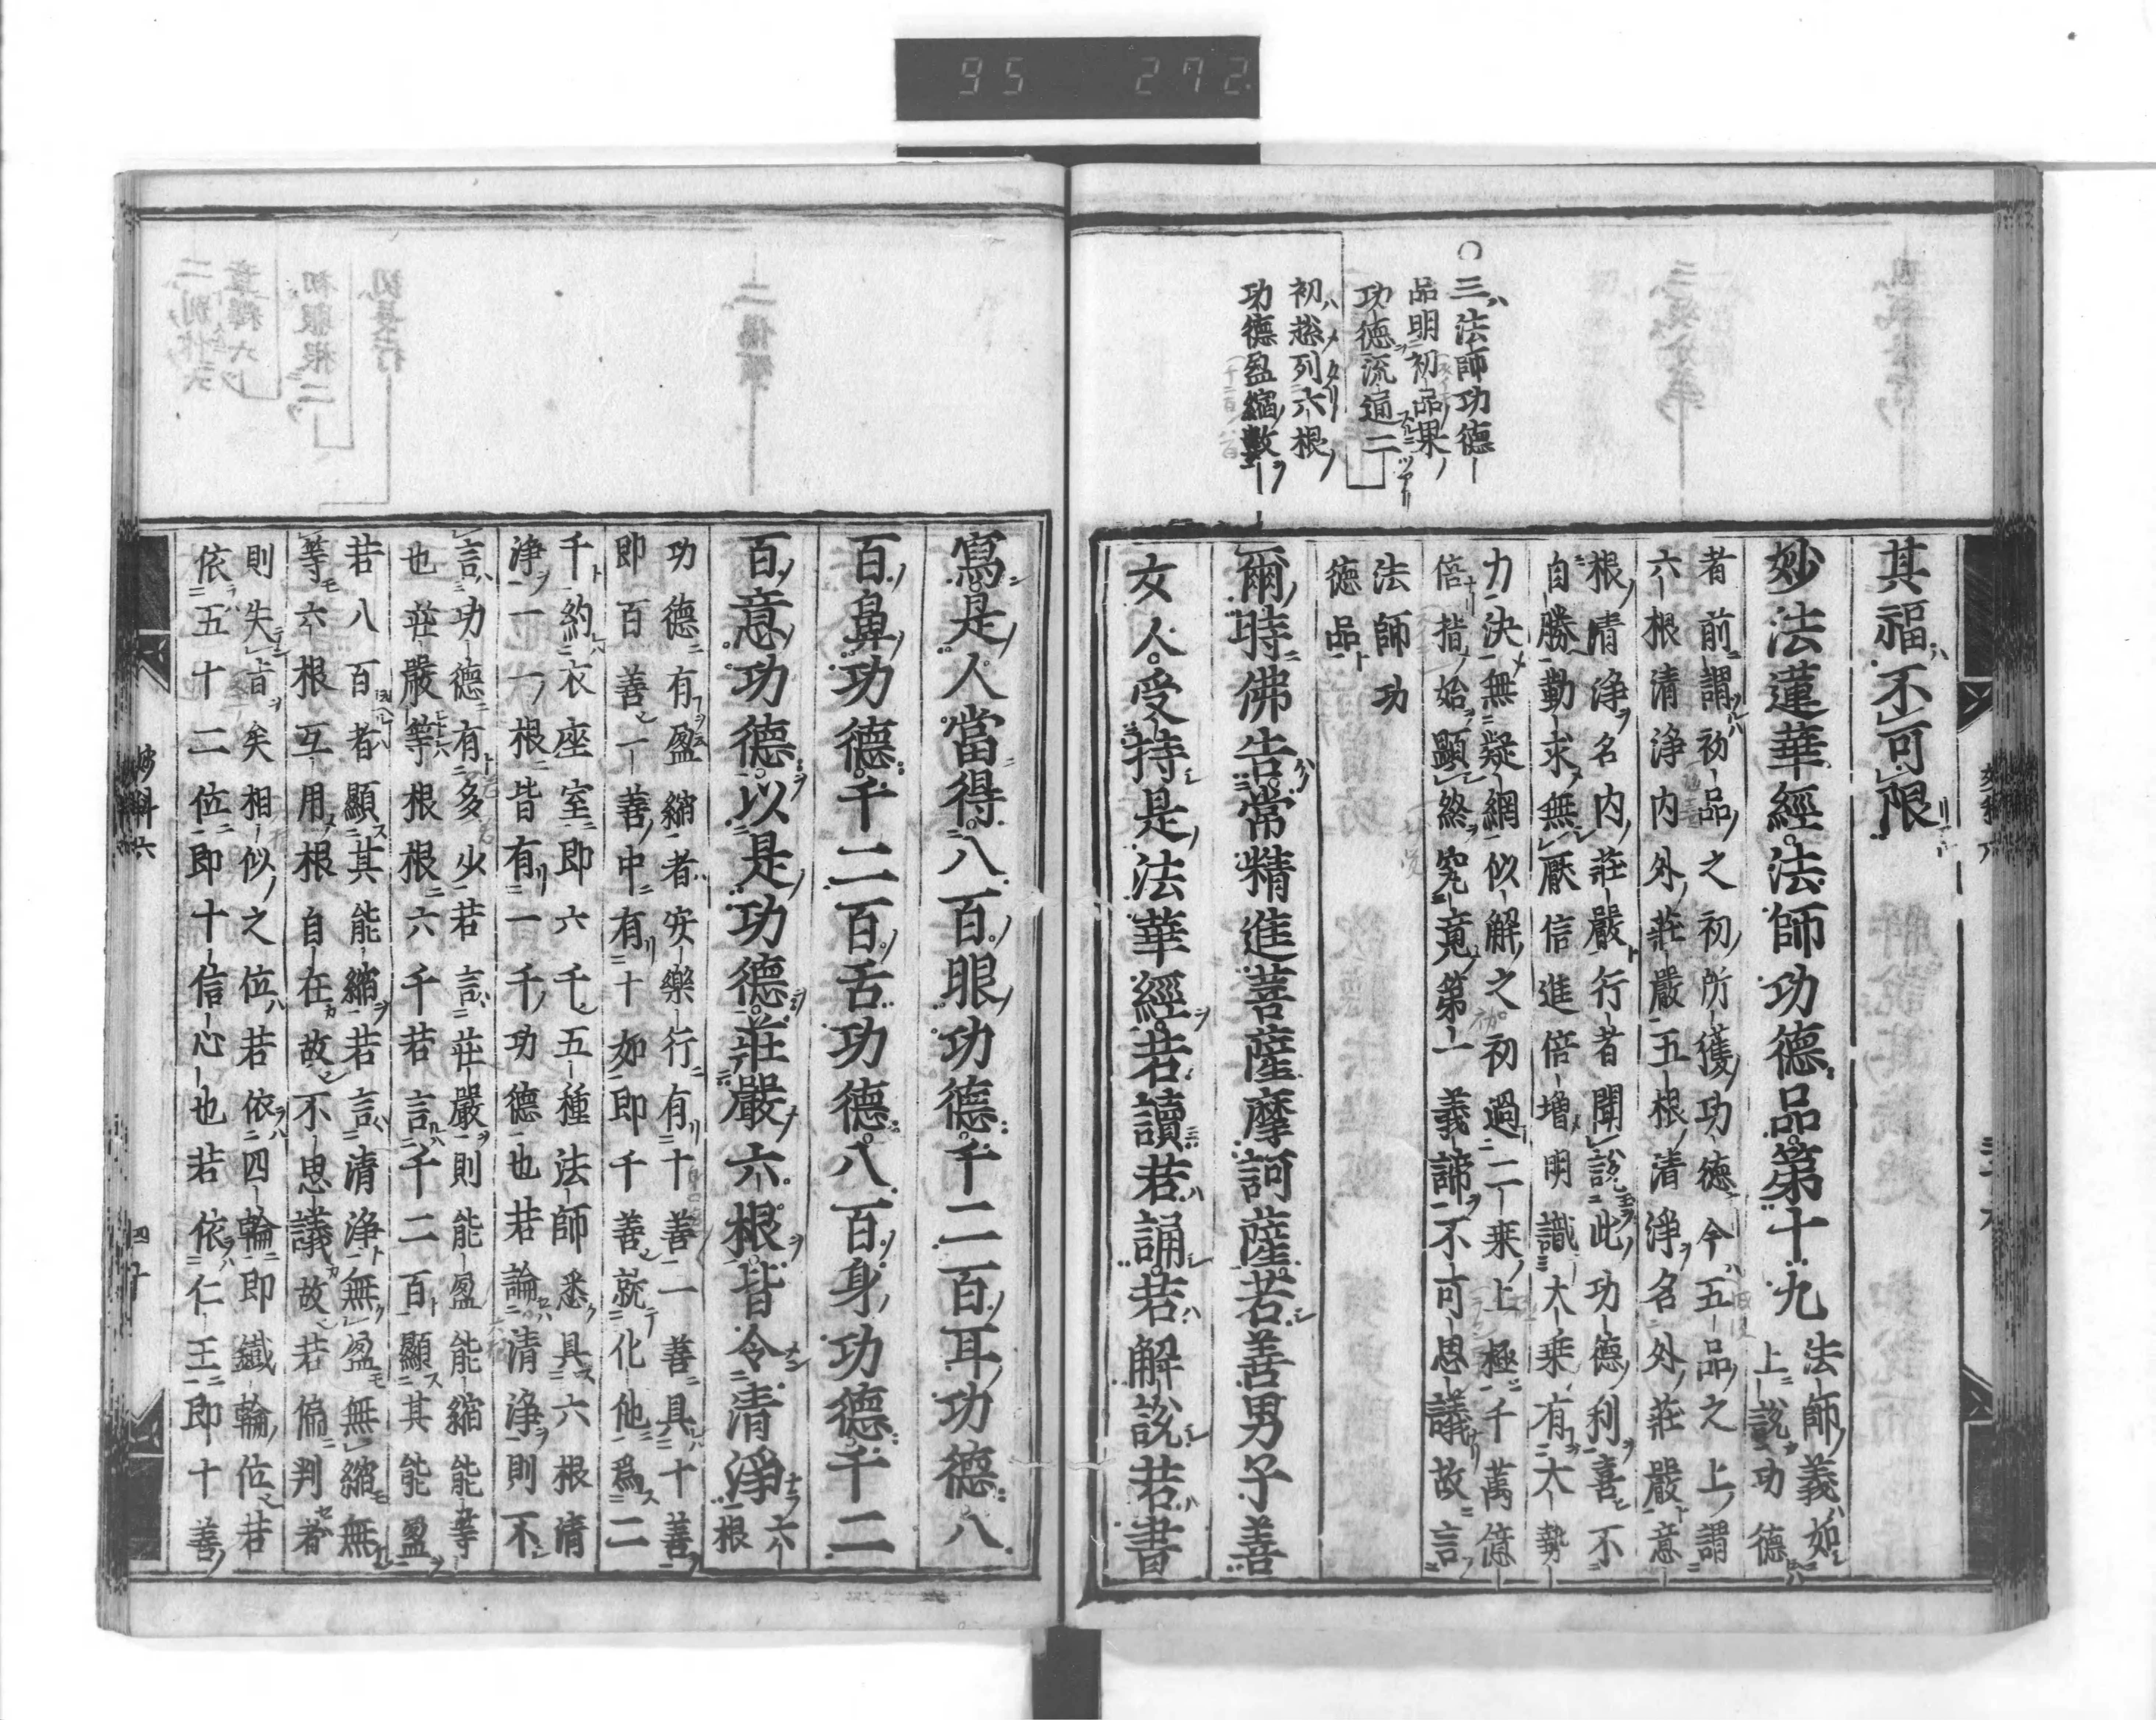 95 272
○三法師功德
品明初品果
功德流通二
初總列六根
功德盈縮數
其福不可限
妙法蓮華經法師功德品第十九
法師義如
上說功德
者前謂初品之初所獲功德今五品之上謂
六根清淨內外莊嚴五根清淨名外莊嚴意
根清淨名內莊嚴行者聞說此功德利喜不
自勝勤求無厭信進倍增明識大乘有大勢
力決無疑網似解之初過二乘上極千萬億
倍指始顯終究竟第一義諦不可思議故言
法師功
德品
爾時佛告常精進菩薩摩訶薩若善男子善
女人受持是法華經若讀若誦若解說若書
寫是人當得八百眼功德千二百耳功德八
百鼻功德千二百舌功德八百身功德千二
百意功德以是功德莊嚴六根皆令清淨
六
根
功德有盈縮者安樂行有十善一善具十善
即百善一善中有十如即千善就化他為二
千約衣座室即六千五種法師悉具六根清
淨一一根皆有一千功德也若論清淨則不
言功德有多少若言莊嚴則能盈能縮能等
也莊嚴等根根六千若言千二百顯其能盈
若八百者顯其能縮若言清淨無盈無縮無
等六根互用根自在故不思議故若偏判者
則失旨矣相似之位若依四輪即鐵輪位若
依五十二位即十信心也若依仁王即十善
妙科六
四十